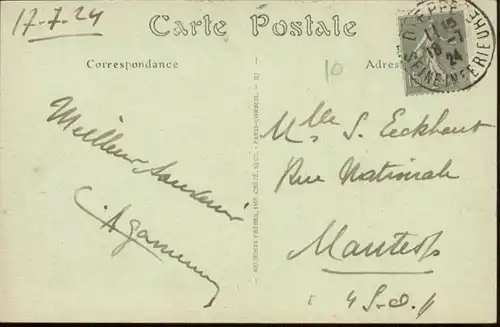 17-7-24
Carte Postale
Correspondance
Adres
DIEPPE
SEINE-INFERIEURE
11 15
18 -7
24
10
Meilleur Souvenir
Mlle S. Eeckhout
Rue Nationale
Mantes
S-&-O
NEURDEIN FRÈRES, IMP. CRÉTÉ, SUCC. - PARIS-CORBEIL